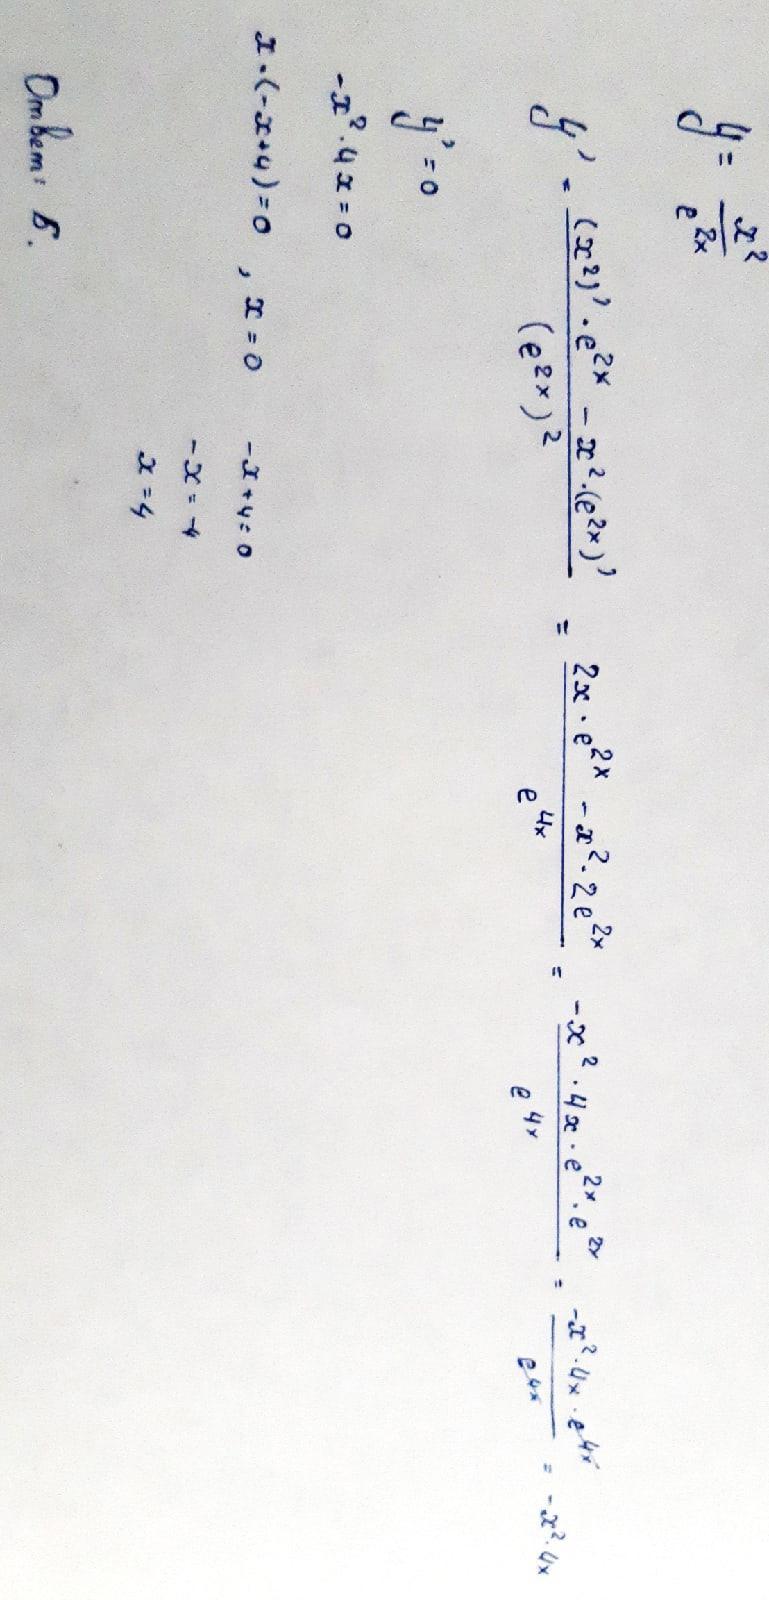 y = x²/e^(2x)
y' = ((x²)' · e^(2x) - x² · (e^(2x))')/(e^(2x))² = (2x · e^(2x) - x² · 2e^(2x))/e^(4x) = (-x² · 4x · e^(2x) · e^(2x))/e^(4x) = (-x² · 4x · e^(4x))/e^(4x) = -x² · 4x
y' = 0
-x² · 4x = 0
x · (-x+4) = 0 , x = 0 -x+4=0
-x = -4
x = 4
Ответ: Б.